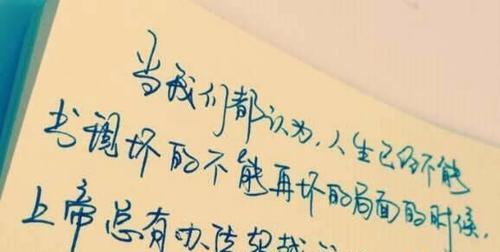 当我们都认为,人生已经不能
出现坏的不能再坏的局面的时候,
上帝总有办法